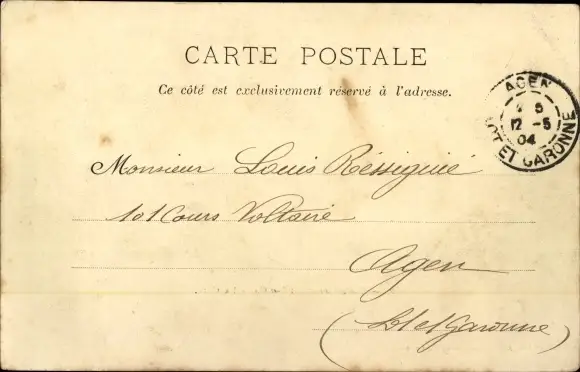 CARTE POSTALE
Ce côté est exclusivement réservé à l'adresse.
AGEN
5
12 -5
04
LOT ET GARONNE
Monsieur Louis Réssiguié
101 Cours Voltaire
Agen
(Lot et Garonne)